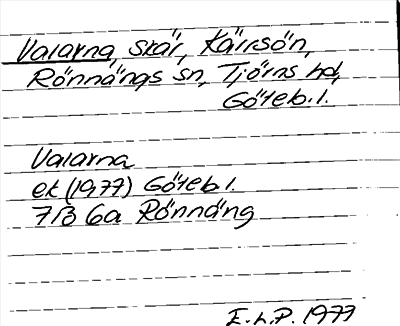 Valarna, skär, Kärrsön,
Rönnängs sn, Tjörns hd,
Göteb. l.
Valarna
ek (1977) Göteb l.
7B 6a Rönnäng
E.L.P. 1977